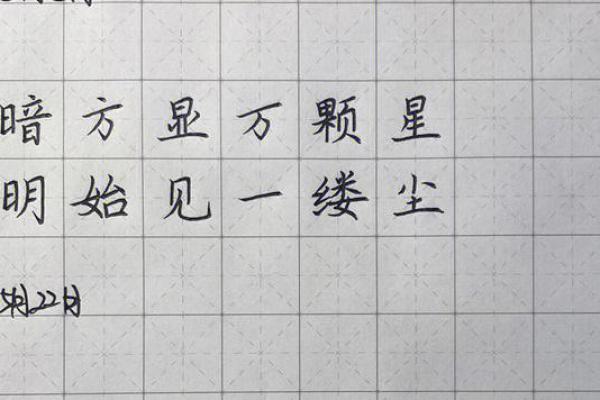 暗方显万颗星
明始见一缕尘
5月22日